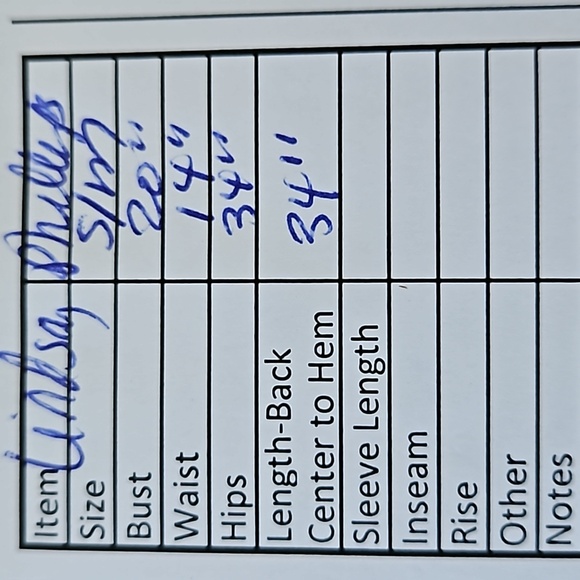 Item Lindsay Phillips
Size S/m
Bust 20"
Waist 14"
Hips 34"
Length-Back
Center to Hem 34"
Sleeve Length
Inseam
Rise
Other
Notes